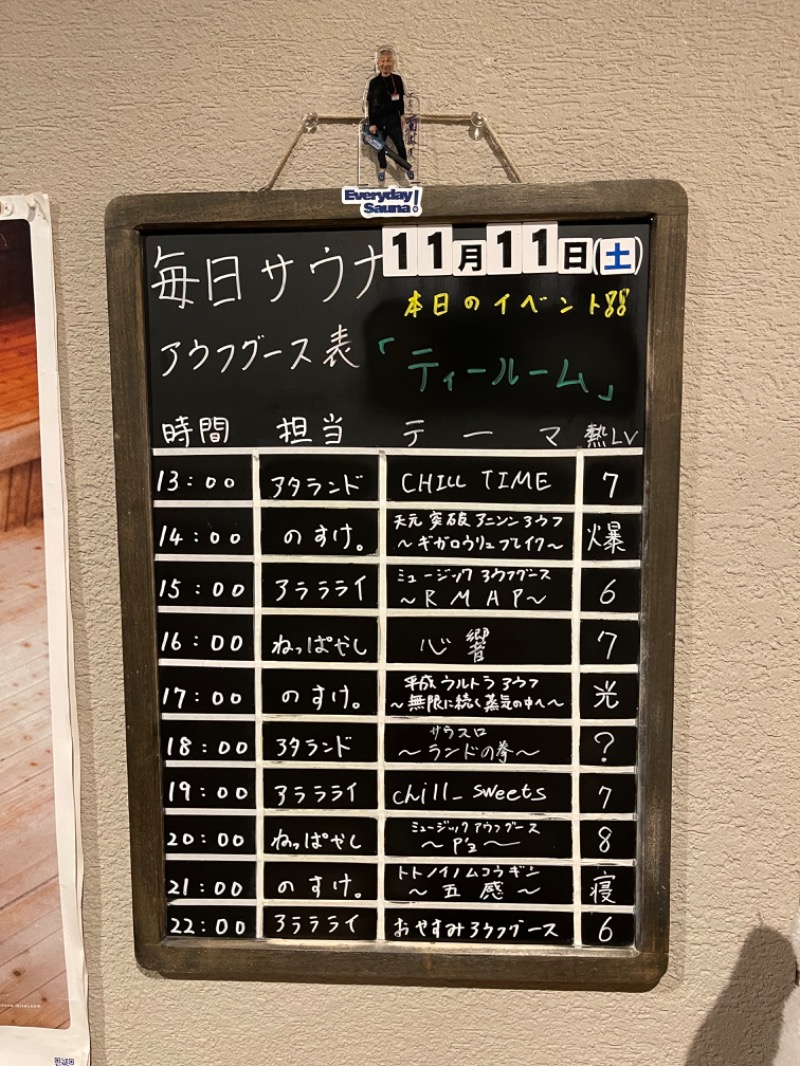 Everyday
Sauna!
毎日サウナ 11月11日(土)
本日のイベント
アウフグース表「ティールーム」
時間 担当 テーマ 熱LV
13:00 アタランド CHILL TIME 7
14:00 のすけ。 天元突破アニソンアウフ 爆
〜ギガロウリュブレイク〜
15:00 アラララライ ミュージックアウフグース 6
〜RMAP〜
16:00 ねっぱやし 心響 7
17:00 のすけ。 平成ウルトラアウフ 光
〜無限に続く蒸気の中へ〜
18:00 アタランド サウスロ ?
〜ランドの拳〜
19:00 アララライ chill_sweets 7
20:00 ねっぱやし ミュージックアウフグース 8
〜P'z〜
21:00 のすけ。 トトノイノムコウギシ 寝
〜五感〜
22:00 アララライ おやすみアウフグース 6